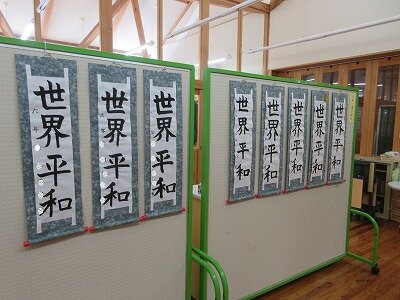 世界平和
六年
世界平和
六年
世界平和
世界平和
世界平和
世界平和
世界平和
世界平和